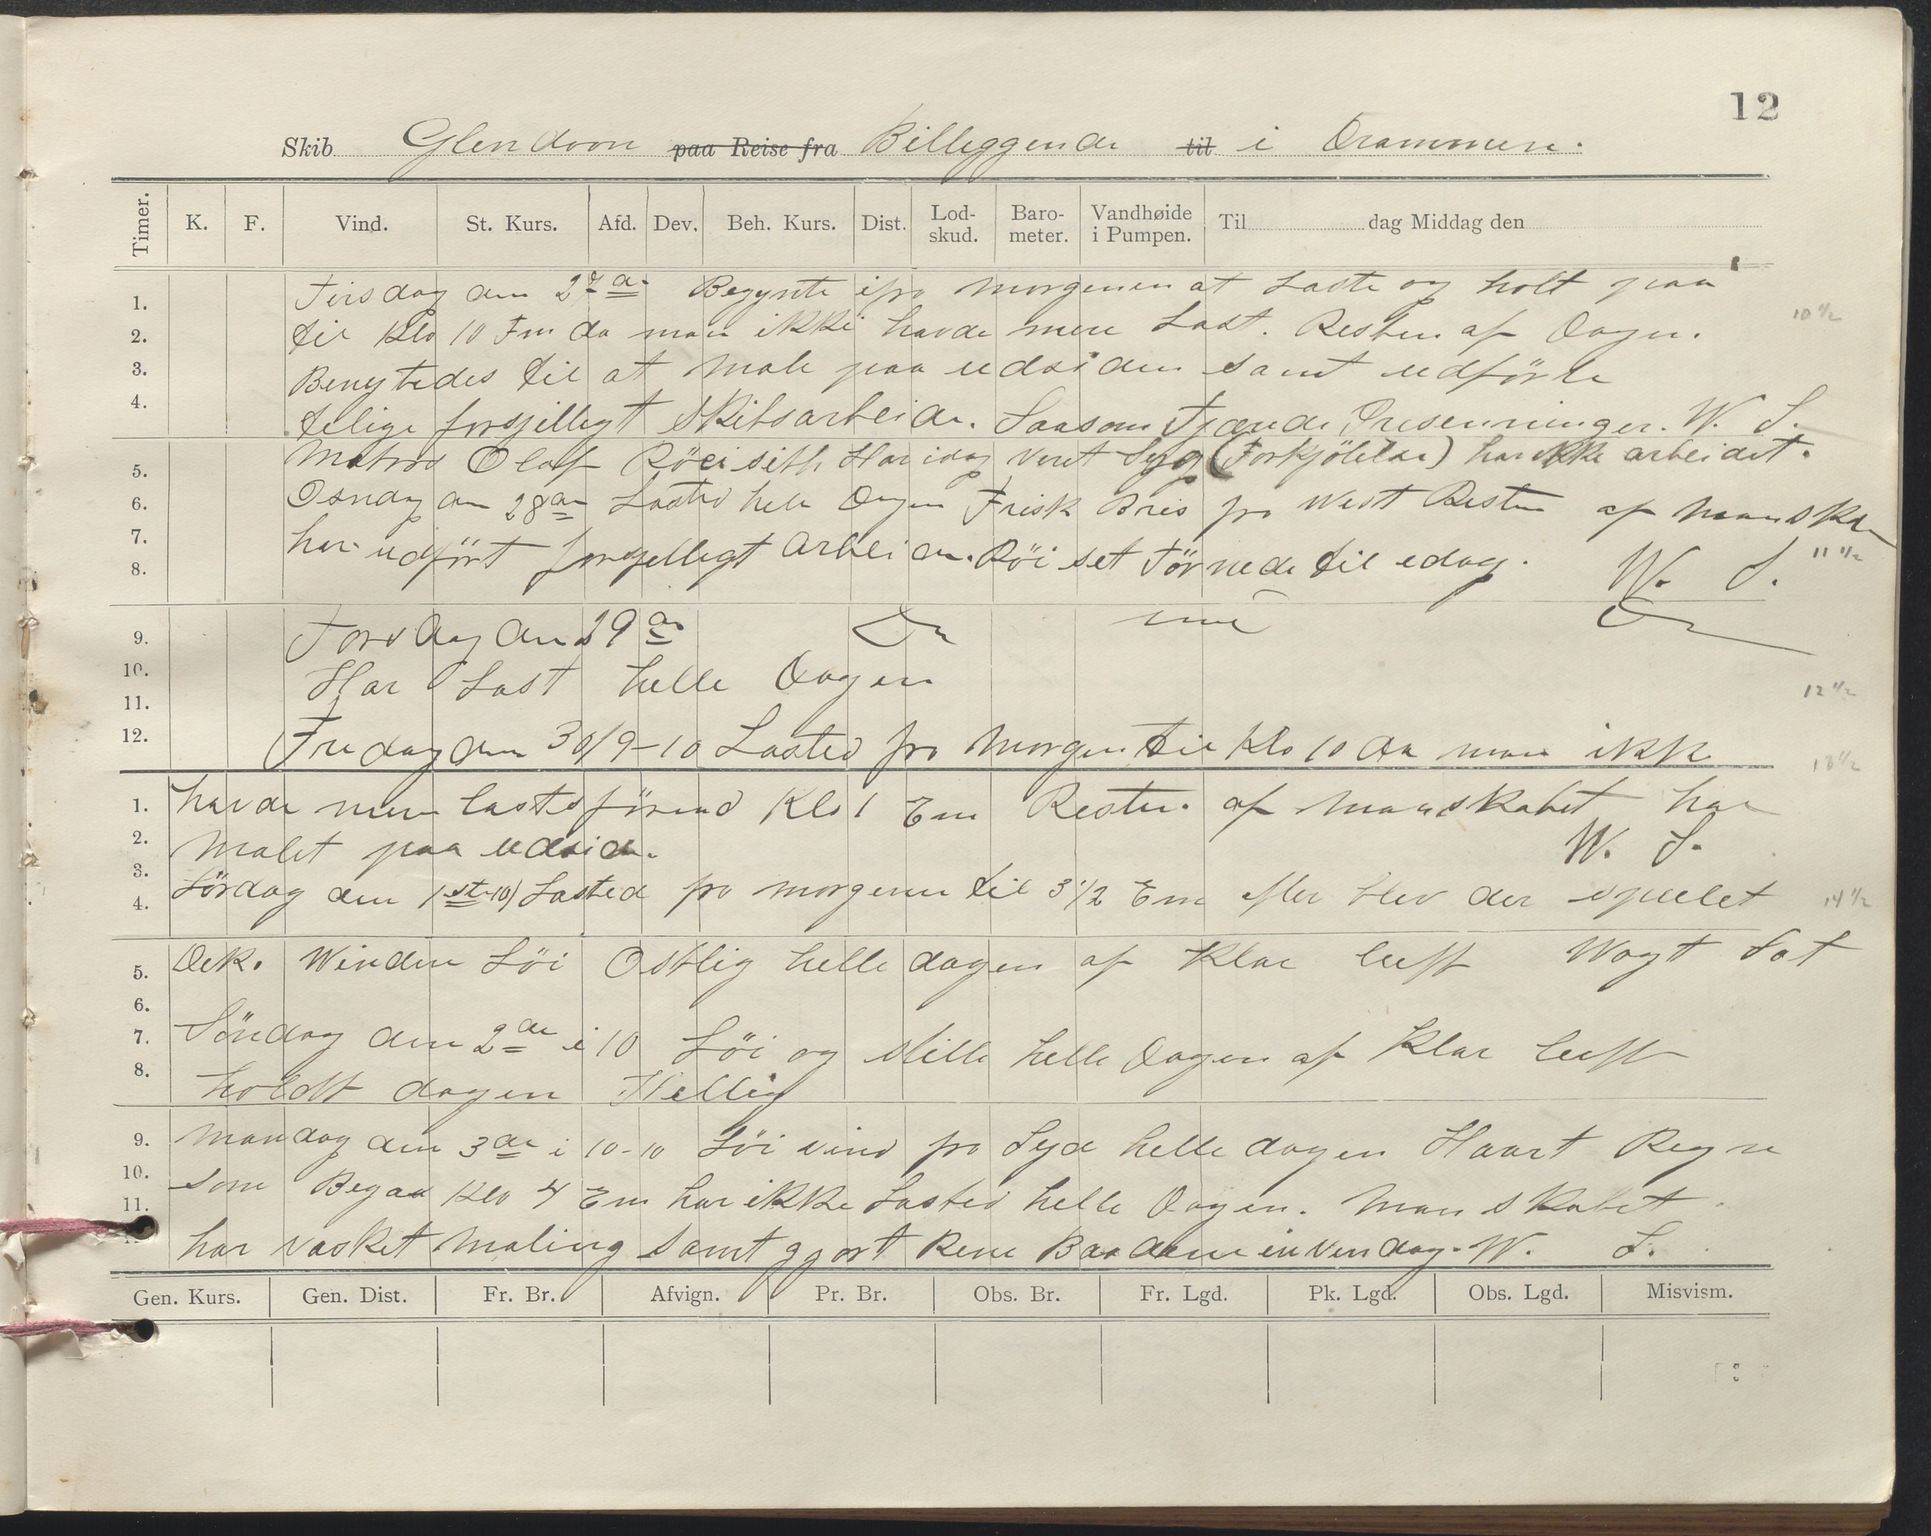 12
Skib Glendoon paa Reise fra Billeggende til i Drammen.
Timer. K. F. Vind. St. Kurs. Afd. Dev. Beh. Kurs. Dist. Lod-skud. Baro-meter. Vandhøide i Pumpen. Til dag Middag den
1. Tirsdag den 27de Begynte ifra morgenen at Laste og holt paa
2. til Klo 10 Fm da man ikke havde mere Last. Resten af Dagen. 10 1/2
3. Benytedes til at Male paa udsiden samt udförte
4. telige forsjelligt Skibsarbeide. Saasom Tjænde Presenninger. W. S.
5. Matros Olof Röeiseth Har idag veret Syg (Forkjölelse) har ikke arbeidet.
6. Onsdag den 28de Lasted hele Dagen Frisk Bris fra West Resten af Manskab
7. har udfört forsjelligt Arbeide. Röiset Törnede til idag. W. S. 11 1/2
8.
9. Torsdag den 29de
10. Har Last helle Dagen 12 1/2
11.
12. Fredag den 30/9-10 Lasted fra Morgen til Klo 10 da man ikke 13 1/2
1. havde mere last förend Klo 1 Em Resten af Manskabet har
2. Malet paa udside. W. S.
3.
4. Lördag den 1ste 10) Lasted fra morgenen til 3 1/2 Em efter blev der spulet 14 1/2
5. Dek. Winden Löi Ostlig helle dagen af Klar luft Wagt Sat
6.
7. Söndag den 2de i 10 Löi og stille helle Dagen af Klar luft
8. holdt dagen Hellig
9. Mandag den 3de i 10-10 Löi vind fra Syd helle dagen Haart Regn
10. som Begaa Klo 4 Em har ikke Lasted helle Dagen. Manskabet
11. har vasket Maling samt gjort Rene Baadene invendag. W. S.
Gen. Kurs. Gen. Dist. Fr. Br. Afvign. Pr. Br. Obs. Br. Fr. Lgd. Pk. Lgd. Obs. Lgd. Misvism.